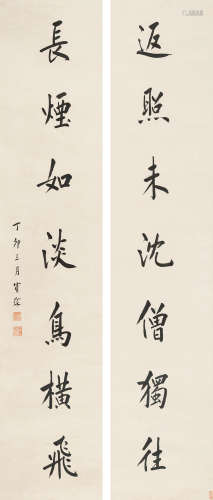 返照未沈僧獨往
長煙如淡鳥橫飛
丁卯三月寶熙